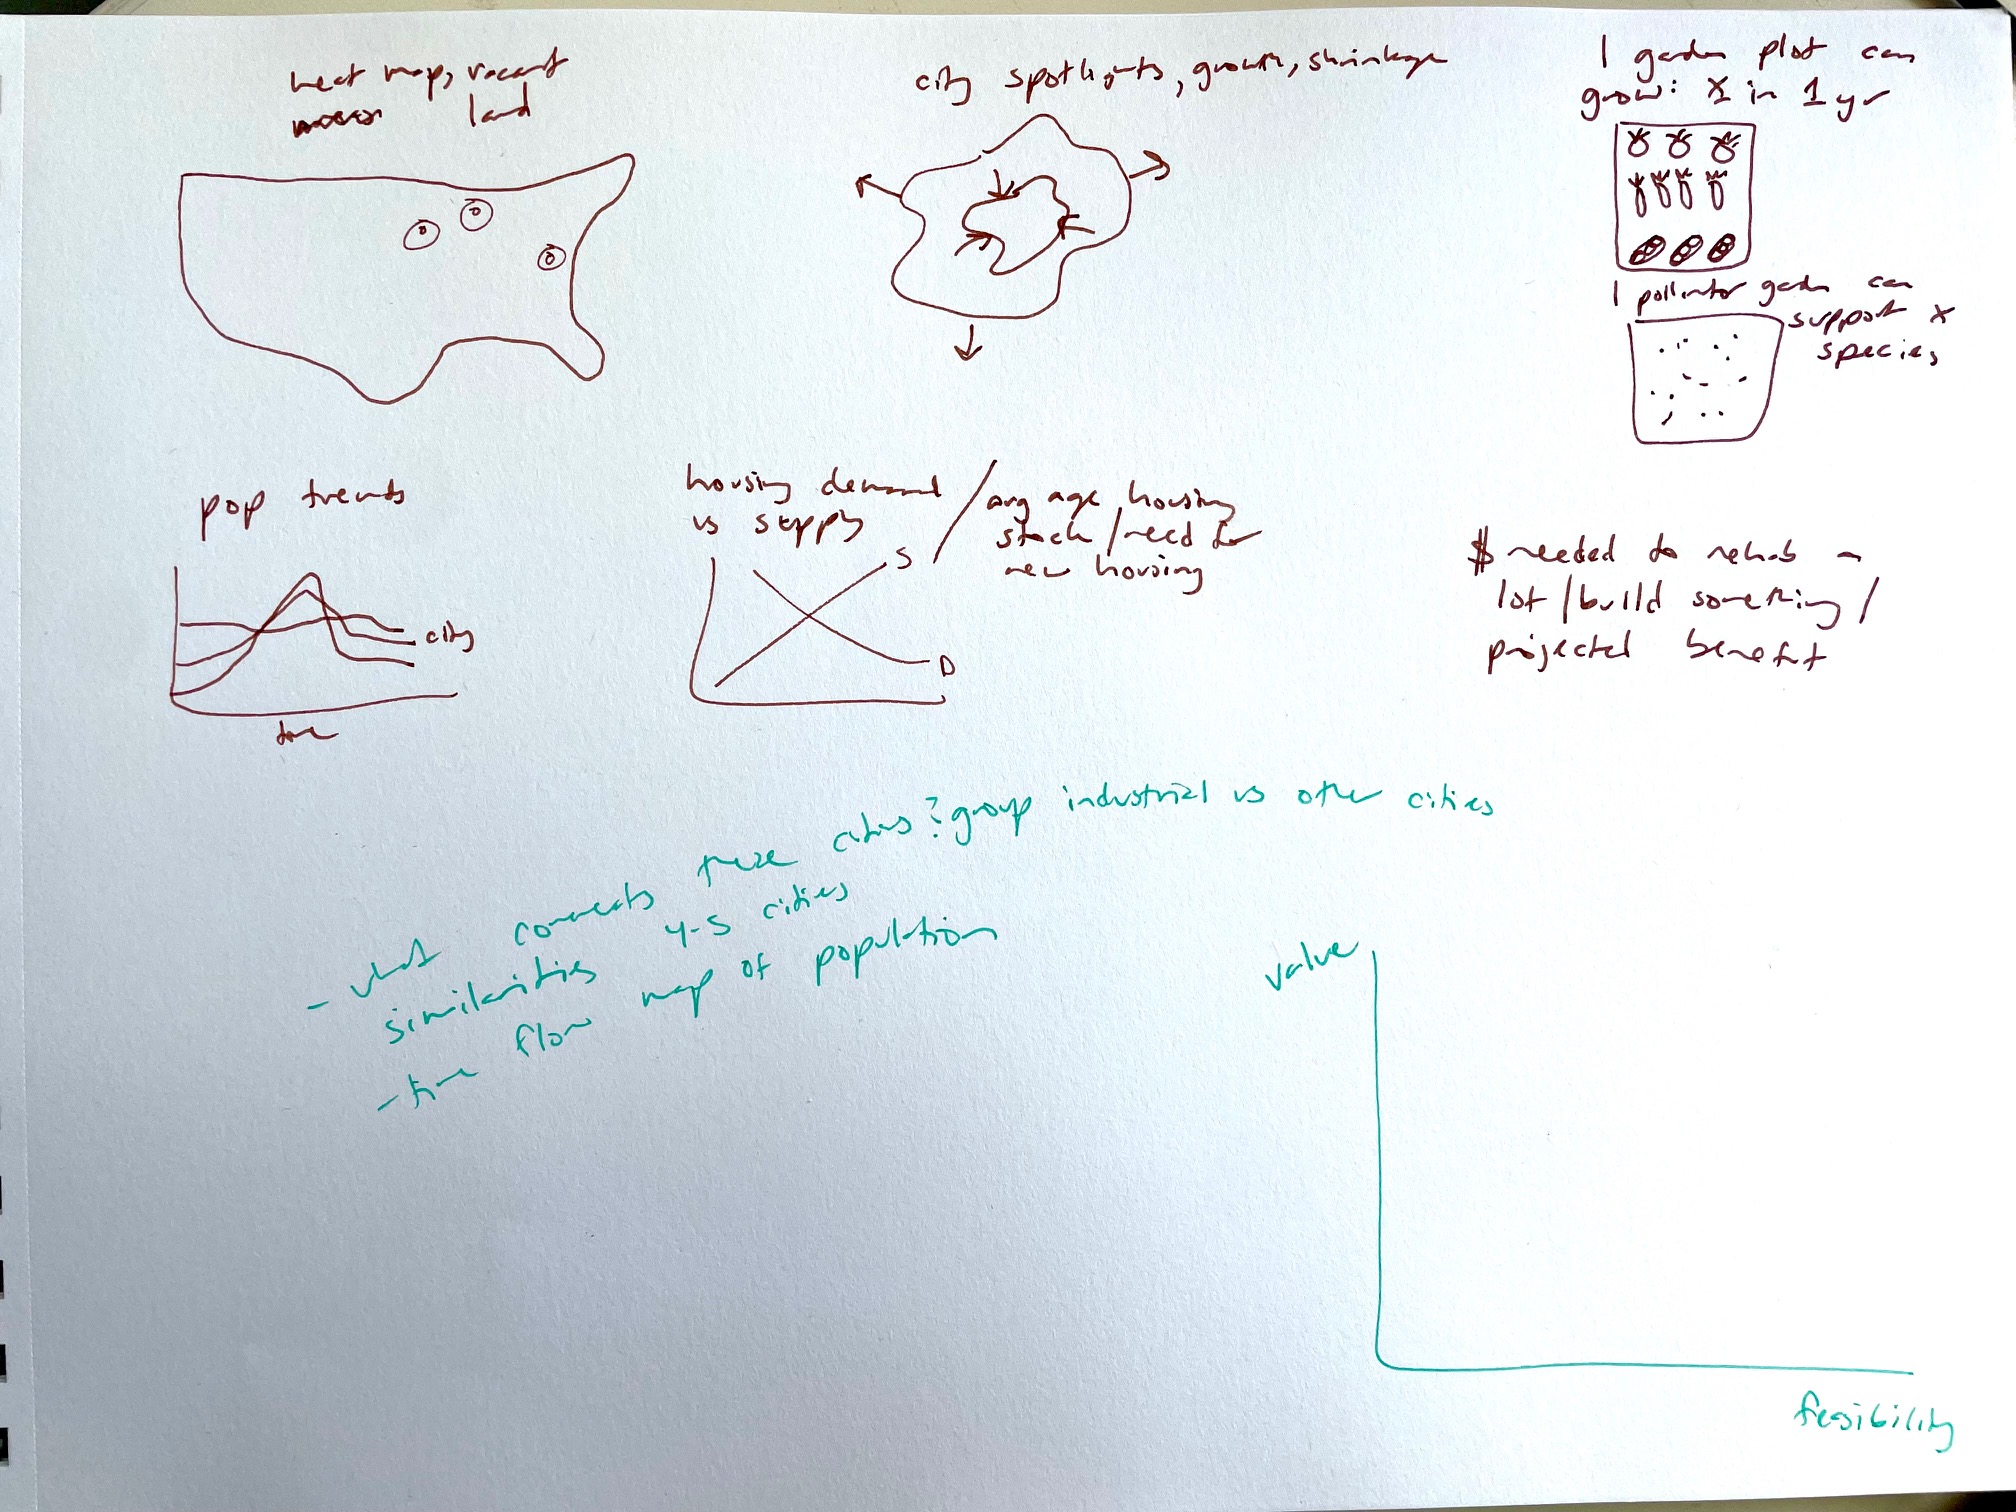 heat map, vacant
land
city spotlights, growth, shrinkage
1 garden plot can
grow: X in 1 yr
1 pollinator garden can
support x
species
pop trends
city
time
housing demand
vs supply
S
D
/ avg age housing
stock / need for
new housing
$ needed to rehab a
lot / build something /
projected benefit
- what connects these cities? group industrial vs other cities
similarities 4-5 cities
- time flow map of population
value
feasibility